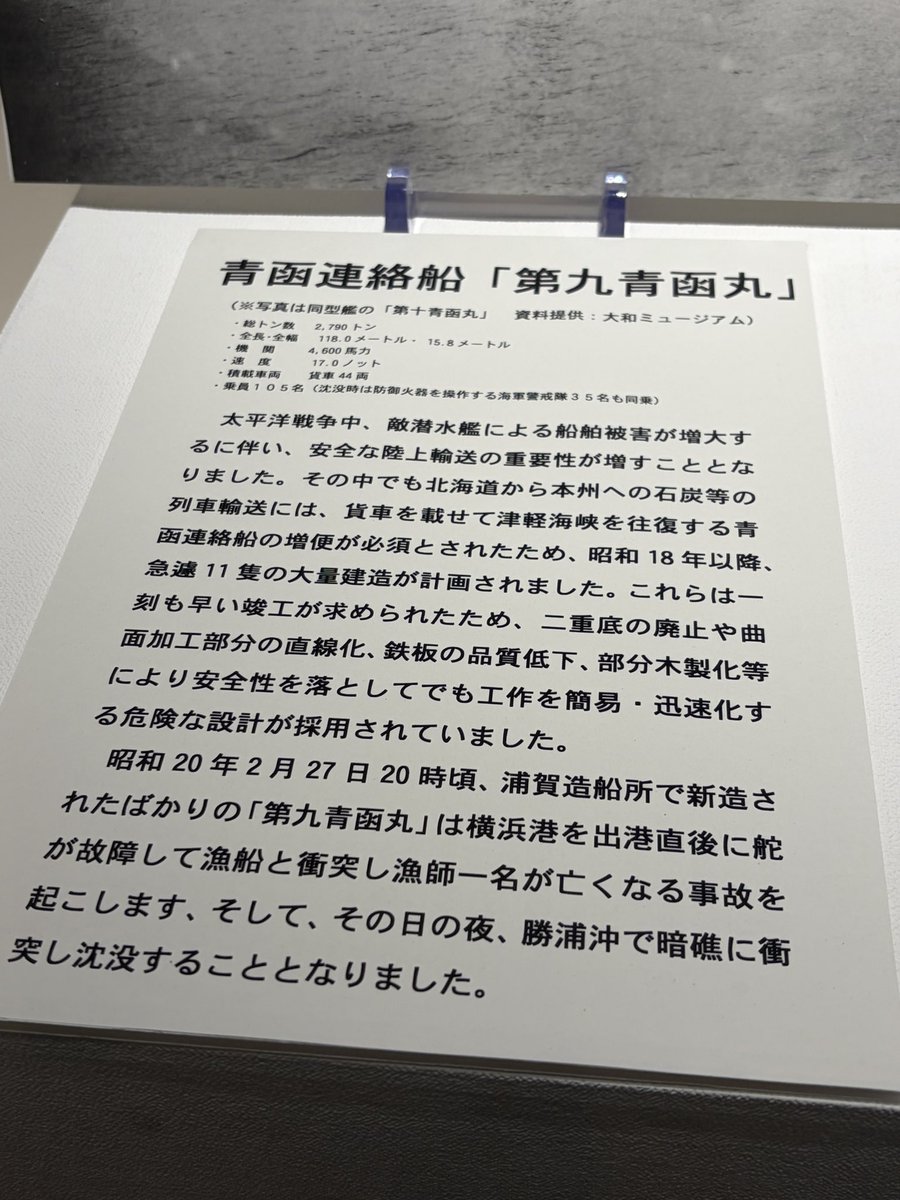 青函連絡船「第九青函丸」
（※写真は同型艦の「第十青函丸」　資料提供：大和ミュージアム）
・総トン数　2,790トン
・全長・全幅　118.0メートル・15.8メートル
・機　関　4,600馬力
・速　度　17.0ノット
・積載車両　貨車44両
・乗員１０５名（沈没時は防御火器を操作する海軍警戒隊３５名も同乗）
太平洋戦争中、敵潜水艦による船舶被害が増大す
るに伴い、安全な陸上輸送の重要性が増すこととな
りました。その中でも北海道から本州への石炭等の
列車輸送には、貨車を載せて津軽海峡を往復する青
函連絡船の増便が必須とされたため、昭和18年以降、
急遽11隻の大量建造が計画されました。これらは一
刻も早い竣工が求められたため、二重底の廃止や曲
面加工部分の直線化、鉄板の品質低下、部分木製化等
により安全性を落としてでも工作を簡易・迅速化す
る危険な設計が採用されていました。
昭和20年2月27日20時頃、浦賀造船所で新造さ
れたばかりの「第九青函丸」は横浜港を出港直後に舵
が故障して漁船と衝突し漁師一名が亡くなる事故を
起こします、そして、その日の夜、勝浦沖で暗礁に衝
突し沈没することとなりました。